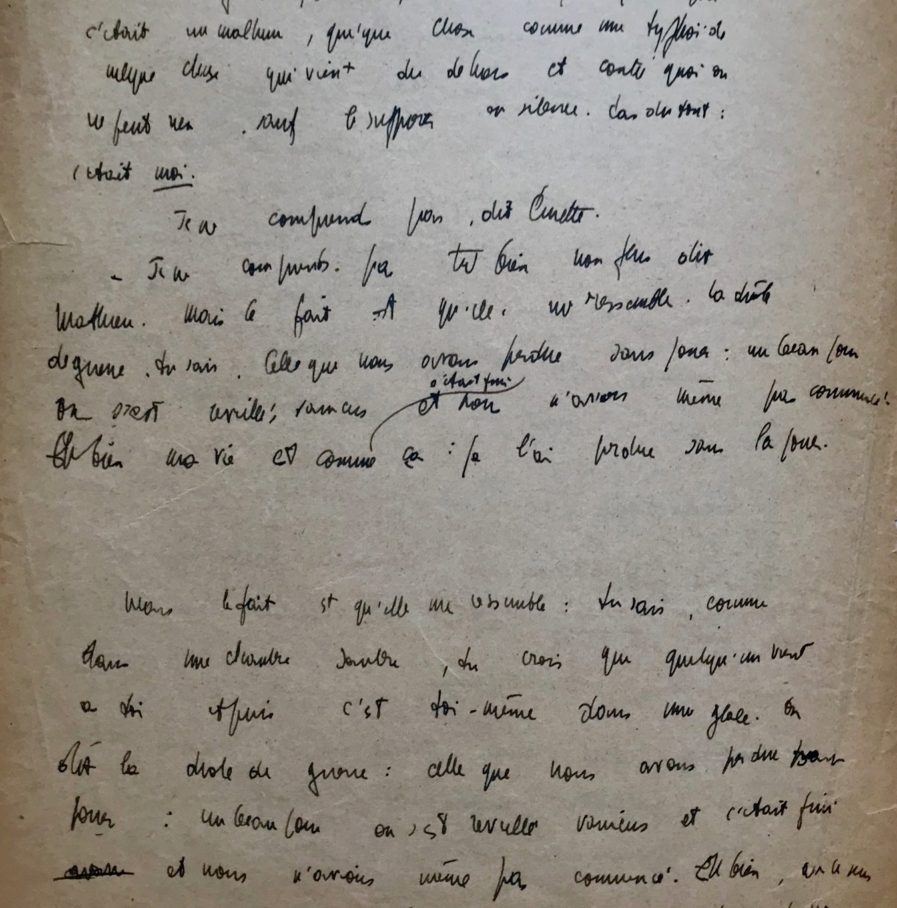 c'était un malheur, quelque chose comme une typhoïde
quelque chose qui vient du dehors et contre quoi on
ne peut rien, sauf le supporter en silence. Pas du tout :
c'était moi.
Je ne comprends pas, dit
- Je ne comprends pas très bien non plus dit
Mathieu. Mais le fait est qu'elle me ressemble. La drôle
de guerre, tu sais. Celle que nous avons perdue sans jouer : un beau jour
c'était fini
on s'est réveillés, vaincus et nous n'avions même pas commencé.
Eh bien ma vie est comme ça : je l'ai perdue sans la jouer.
Mais le fait est qu'elle me ressemble : tu sais, comme
dans une chambre sombre, tu crois que quelqu'un vient
à toi et puis c'est toi-même dans une glace. On
dit la drôle de guerre : celle que nous avons perdue sans
jouer : un beau jour on s'est réveillé vaincus et c'était fini
et nous n'avions même pas commencé. Eh bien,